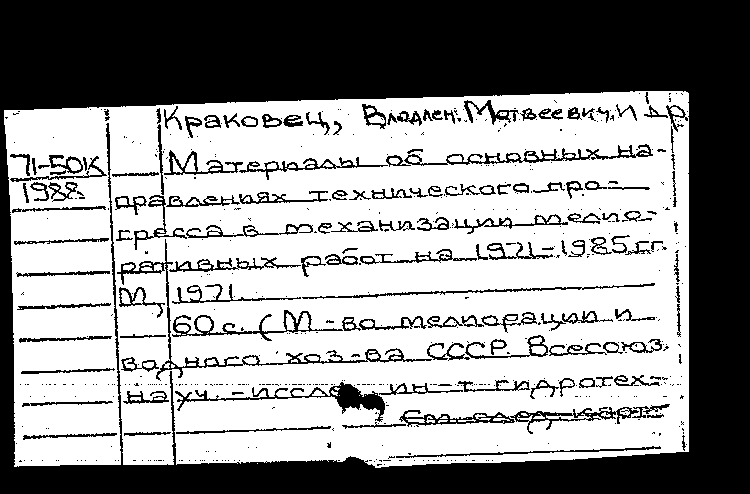 Краковец, Владлен Матвеевич, и др.
71-50К Материалы об основных на-
1988 правлениях технического про-
гресса в механизации мелио-
ративных работ на 1971-1985 гг.
М, 1971.
60 с. (М-во мелиорации и
водного хоз-ва СССР. Всесоюз.
науч.-исслед. ин-т гидротех-
См. след. карт.